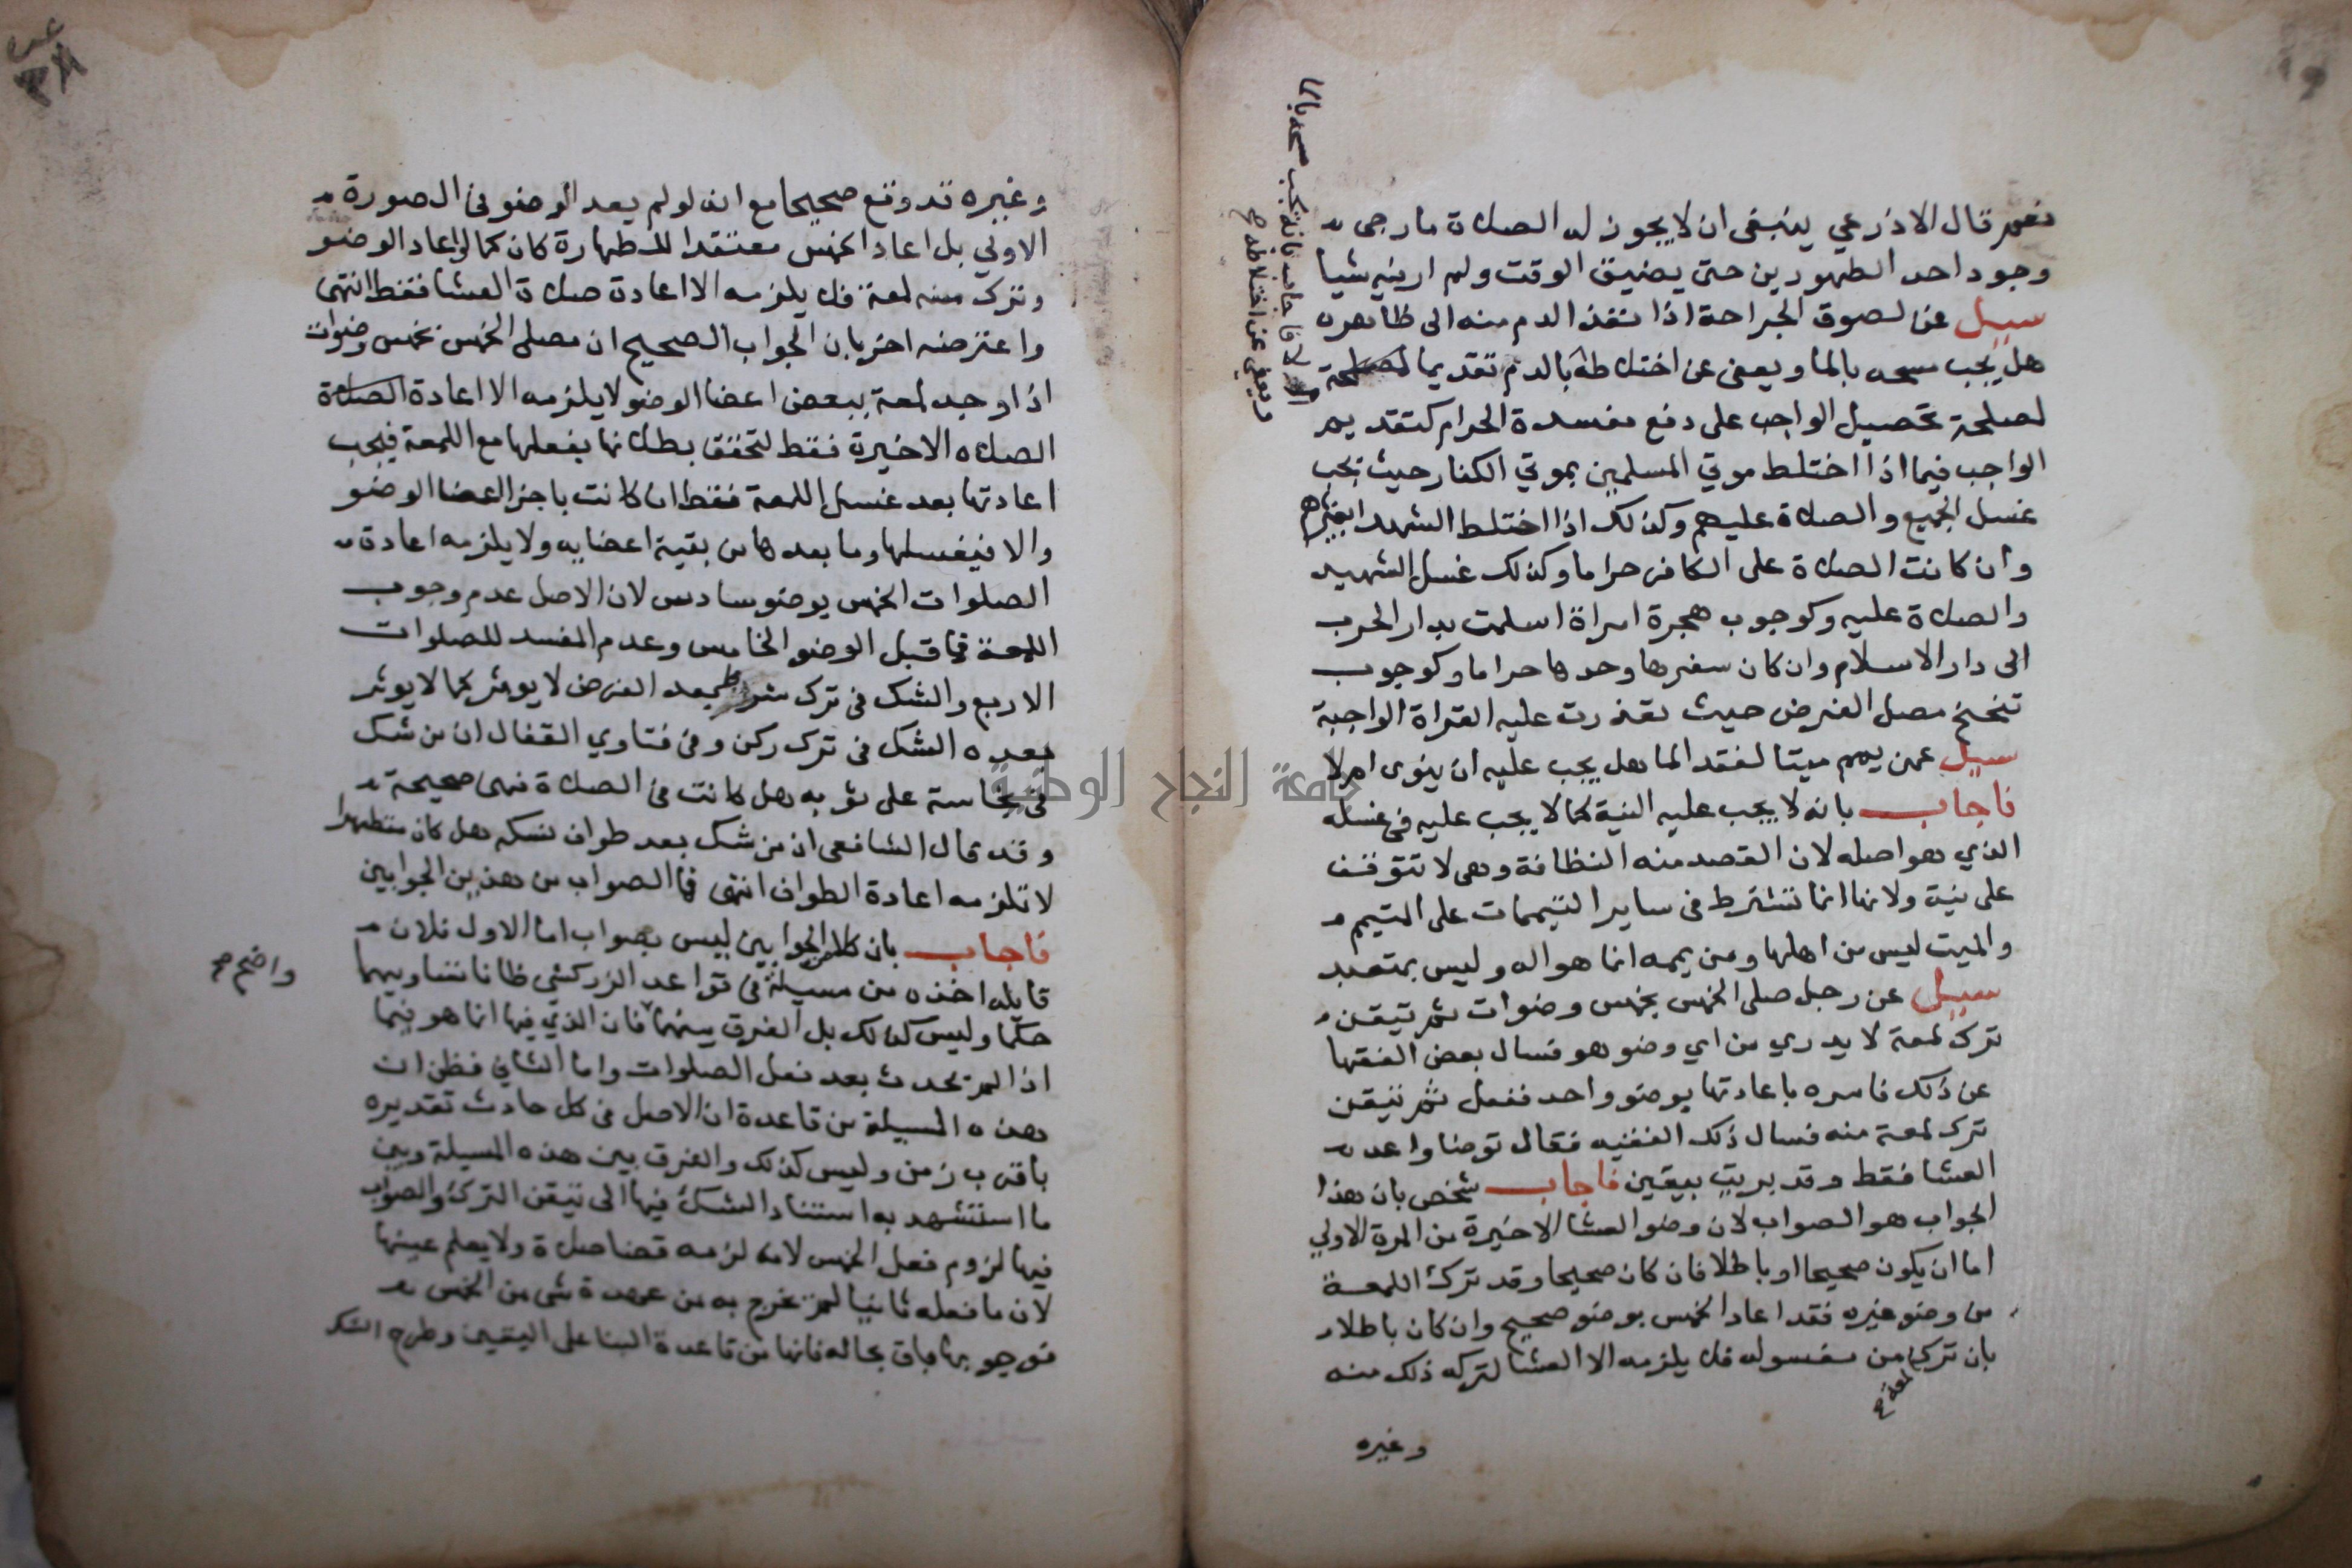 نعم قال الاذرعي ينبغى ان لا يجوز له الصلاة مارجى
وجود احد الطهورين حتى يضيق الوقت ولم ار فيه شيا
سيل عن لصوق الجراحة اذا نفذ الدم منه الى ظاهره
هل يجب مسحه بالما ويعفى عن اختلاطه بالدم تقديما لمصلحة
لمصلحة تحصيل الواجب على دفع مفسدة الحرام كتقديم
الواجب فيما اذا اختلط موتي المسلمين بموتي الكفار حيث يجب
غسل الجميع والصلاة عليهم وكذلك اذا اختلط الشهدا بغيرهم
وان كانت الصلاة على الكافر حراما وكذلك غسل الشهيد
والصلاة عليه وكوجوب هجرة امراة اسلمت بدار الحرب
الى دار الاسلام وان كان سفرها وحدها حراما وكوجوب
تنحنح مصل الفرض حيث تعذرت عليه القراة الواجبة
سيل عمن يمم ميتا لفقد الما هل يجب عليه ان ينوى ام لا
فاجاب بانه لا يجب عليه النية كما لا يجب عليه في غسله
الذي هو اصله لان القصد منه النظافة وهى لا تتوقف
على نية ولانها انما تشترط فى ساير التيممات على المتيمم
والميت ليس من اهلها ومن يممه انما هو اله وليس بمتعبد
سيل عن رجل صلى الخمس بخمس وضوات ثم تيقن
ترك لمعة لا يدري من اي وضو هو فسال بعض الفقها
عن ذلك فامره باعادتها بوضو واحد ففعل ثم تيقن
ترك لمعة منه فسال ذلك الفقيه فقال توضا واعد
العشا فقط وقد بريت بيقين فاجاب شخص بان هذا
الجواب هو الصواب لان وضو العشا الاخيرة من المرة الاولي
اما ان يكون صحيحا او باطلا فان كان صحيحا وقد ترك اللمعة
من وضو غيره فقد اعاد الخمس بوضو صحيح وان كان باطلا
بان ترك من مغسوله فلا يلزمه الا العشا لتركه ذلك منه
لمعة صح
وغيره
ام لا فاجاب بانه يجب مسحه بالما
ويعفى عن اختلاطه صح
وغيره قد وقع صحيحا مع انه لو لم يعد الوضو فى الصورة
الاولي بل اعاد الخمس معتقدا للطهارة كان كما لو اعاد الوضو
وترك منه لمعة فلا يلزمه الا اعادة صلاة العشا فقط انتهى
واعترضه اخر بان الجواب الصحيح ان مصلى الخمس بخمس وضوات
اذا وجد لمعة ببعض اعضا الوضو لا يلزمه الا اعادة الصلاة
الصلاه الاخيرة فقط لتحقق بطلانها بفعلها مع اللمعة فيجب
اعادتها بعد غسل اللمعة فقط ان كانت باخر اعضا الوضو
والا فيغسلها وما بعدها من بقية اعضايه ولا يلزمه اعادة
الصلوات الخمس بوضو سادس لان الاصل عدم وجوب
اللمعة فيما قبل الوضو الخامس وعدم المفسد للصلوات
الاربع والشك فى ترك شرط بعد الفرض لا يوثر كما لا يوثر
بعده الشك فى ترك ركن وفى فتاوي القفال ان من شك
فى نجاسة على ثوبه هل كانت فى الصلاة فهى صحيحة
وقد قال الشافعى ان من شك بعد طواف نسكه هل كان متطهرا
لا تلزمه اعادة الطواف انتهى فما الصواب من هذين الجوابين
فاجاب بان كلا من الجوابين ليس بصواب اما الاول فلان
قايله اخذه من مسيلة فى قواعد الزركشى ظانا تساويهما
حكما وليس كذلك بل الفرق بينهما فان الذي فيها انما هو فيما
واضح صح
اذا لم يحدث بعد فعل الصلوات واما الثاني فظن ان
هذه المسيلة من قاعدة ان الاصل فى كل حادث تقديره
باقرب زمن وليس كذلك والفرق بين هذه المسيلة وبين
ما استشهد به استناد الشك فيها الى تيقن الترك والصواب
فيها لزوم فعل الخمس لانه لزمه قضا صلاة ولا يعلم عينها
لان ما فعله ثانيا لم يخرج به من عهدة شى من الخمس
فوجوبها باق بحاله فانها من قاعدة البنا على اليقين وطرح الشك
جامعة النجاح الوطنية